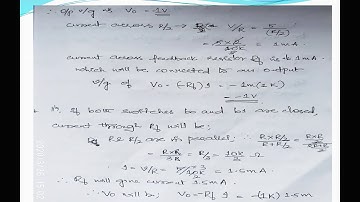 ∴ o/p v/g is Vo = -1V
current across R/2 → V/R = 5/(R/2)
= 5×2/10k = 1mA
current across feedback resistor Rf is 1mA.
which will be connected to our output
v/g of Vo = (-Rf) I = -1m(1K)
= -1V
If both switches bo and b1 are closed,
current through Rf will be;
R & R/2 are in parallel; ∴ R×R/2 / R+R/2 =
= R×R/3R = R/3 = 10k Ω
= 1.5mA.
∴ Rf will give current 1.5mA.
∴ Vo will be; Vo = -Rf I = -(1K) 1.5m